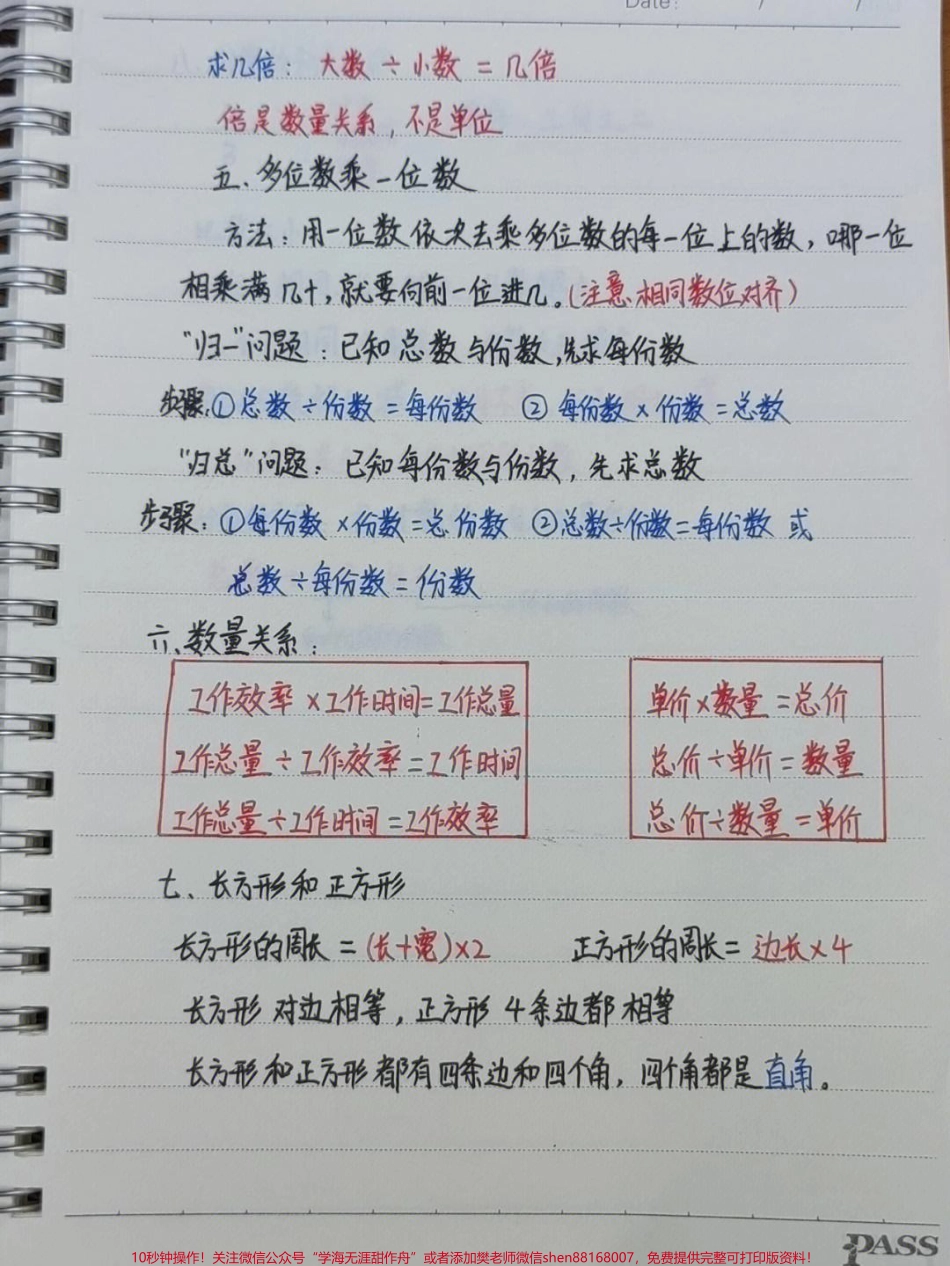 Date: / /
求几倍：大数÷小数＝几倍
倍是数量关系，不是单位
五、多位数乘一位数
方法：用一位数依次去乘多位数的每一位上的数，哪一位
相乘满几十，就要向前一位进几。(注意相同数位对齐)
“归一”问题：已知总数与份数，先求每份数
步骤：①总数÷份数＝每份数 ②每份数×份数＝总数
“归总”问题：已知每份数与份数，先求总数
步骤：①每份数×份数＝总份数 ②总数÷份数＝每份数 或
总数÷每份数＝份数
六、数量关系：
工作效率×工作时间＝工作总量 单价×数量＝总价
工作总量÷工作效率＝工作时间 总价÷单价＝数量
工作总量÷工作时间＝工作效率 总价÷数量＝单价
七、长方形和正方形
长方形的周长＝(长＋宽)×2 正方形的周长＝边长×4
长方形对边相等，正方形4条边都相等
长方形和正方形都有四条边和四个角，四个角都是直角。
PASS
10秒钟操作！关注微信公众号“学海无涯甜作舟”或者添加樊老师微信shen88168007，免费提供完整可打印版资料！